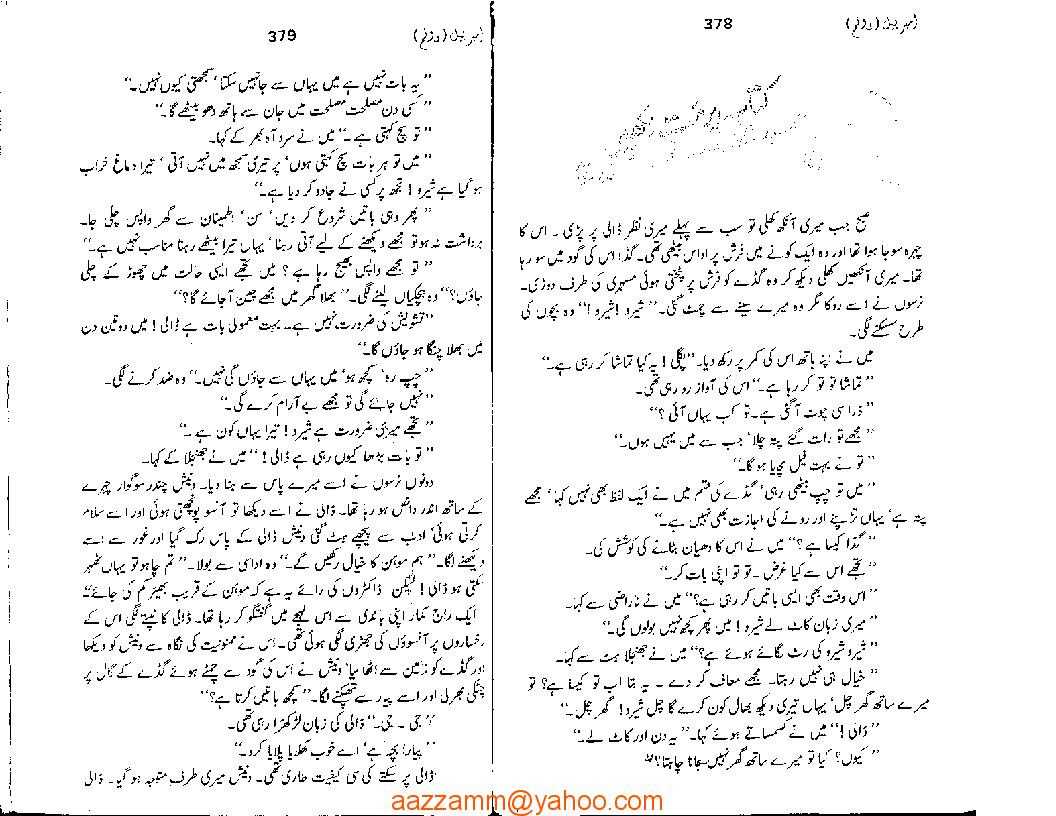 امر بیل (دوئم)
378
صبح جب میری آنکھ کھلی تو سب سے پہلے میری نظر ڈالی پر پڑی۔ اس کا
چہرہ سوجا ہوا تھا اور وہ ایک کونے میں فرش پر اداس بیٹھی تھی۔ گڈا اس کی گود میں سو رہا
تھا۔ میری آنکھیں کھلی دیکھ کر وہ گڈے کو فرش پر پٹختی ہوئی مسہری کی طرف دوڑی۔
نرسوں نے اسے روکا مگر وہ میرے سینے سے چمٹ گئی۔ "شیرو! شیرو!" وہ بچوں کی
طرح سسکنے لگی۔
میں نے اپنا ہاتھ اس کی کمر پر رکھ دیا۔ "پگلی! یہ کیا تماشا کر رہی ہے۔"
"تماشا تو تو کر رہا ہے۔" اس کی آواز رو رہی تھی۔
"ذرا سی چوٹ آگئی ہے۔ تو کب یہاں آئی؟"
"مجھے تو رات گئے پتہ چلا' جب سے میں یہیں ہوں۔"
"تو نے بہت فیل مچایا ہو گا۔"
"میں تو چپ بیٹھی رہی' گڈے کی قسم میں نے ایک لفظ بھی نہیں کہا' مجھے
پتہ ہے' یہاں تڑپنے اور رونے کی اجازت بھی نہیں ہے۔"
"گڈا کیسا ہے؟" میں نے اس کا دھیان بٹانے کی کوشش کی۔
"تجھے اس سے کیا غرض۔ تو تو اپنی بات کر۔"
"اس وقت بھی ایسی باتیں کر رہی ہے؟" میں نے ناراضی سے کہا۔
"میری زبان کاٹ لے شیرو! میں پھر کچھ نہیں بولوں گی۔"
"شیرو شیرو کی رٹ لگائے ہوئے ہے؟" میں نے جھنجلاہٹ سے کہا۔
"خیال ہی نہیں رہتا۔ مجھے معاف کر دے۔ یہ بتا اب تو کیسا ہے؟ تو
میرے ساتھ گھر چل' یہاں تیری دیکھ بھال کون کرے گا چل شیرو! گھر چل۔"
"ڈالی!" میں نے کسمساتے ہوئے کہا۔ "یہ دن اور کاٹ لے۔"
"کیوں؟ کیا تو میرے ساتھ گھر نہیں جانا چاہتا؟"
امر بیل (دوئم)
379
"یہ بات نہیں ہے میں یہاں سے جا نہیں سکتا' سمجھتی کیوں نہیں۔"
"کسی دن مصلحت مصلحت میں جان سے ہاتھ دھو بیٹھے گا۔"
"تو سچ کہتی ہے۔" میں نے سرد آہ بھر کے کہا۔
"میں تو ہر بات سچ کہتی ہوں' پر تیری سمجھ میں نہیں آتی' تیرا دماغ خراب
ہو گیا ہے شیرو! تجھ پر کسی نے جادو کر دیا ہے۔"
"پھر وہی باتیں شروع کر دیں' سن' اطمینان سے گھر واپس چلی جا۔
برداشت نہ ہو تو مجھے دیکھنے کے لیے آتی رہنا' یہاں تیرا بیٹھے رہنا مناسب نہیں ہے۔"
"تو مجھے واپس بھیج رہا ہے؟ میں تجھے ایسی حالت میں چھوڑ کے چلی
جاؤں؟" وہ ہچکیاں لینے لگی۔ "بھلا گھر میں مجھے چین آ جائے گا؟"
"تشویش کی ضرورت نہیں ہے۔ بہت معمولی بات ہے ڈالی! میں دو تین دن
میں بھلا چنگا ہو جاؤں گا۔"
"چپ رہ' کچھ ہو' میں یہاں سے جاؤں گی نہیں۔" وہ ضد کرنے لگی۔
"نہیں جائے گی تو مجھے بے آرام کرے گی۔"
"تجھے میری ضرورت ہے شیرو! تیرا یہاں کون ہے۔"
"تو بات بڑھا کیوں رہی ہے ڈالی!" میں نے جھنجلا کے کہا۔
دونوں نرسوں نے اسے میرے پاس سے ہٹا دیا۔ ونیش چندر سوگوار چہرے
کے ساتھ اندر داخل ہو رہا تھا۔ ڈالی نے اسے دیکھا تو آنسو پونچھتی ہوئی اور اسے سلام
کرتی ہوئی' ادب سے پیچھے ہٹ گئی ونیش ڈالی کے پاس رک گیا اور غور سے اسے
دیکھنے لگا۔ "ہم موہن کا خیال رکھیں گے۔" وہ اداسی سے بولا۔ "تم چاہو تو یہاں ٹھہر
سکتی ہو ڈالی! لیکن ڈاکٹروں کی رائے یہ ہے کہ موہن کے قریب بھیڑ کم کی جائے"
ایک راج کمار اپنی باندی سے اس لہجے میں گفتگو کر رہا تھا۔ ڈالی کانپنے لگی اس کے
رخساروں پر آنسوؤں کی جھڑی لگی ہوئی تھی۔ اس نے ممنونیت کی نگاہ سے ونیش کو دیکھا
اور گڈے کو زمین سے اٹھا لیا' ونیش نے اس کی گود سے چمٹے ہوئے گڈے کے گال پر
چٹکی بھر لی اور اسے پیار سے تھپکنے لگا۔ "کچھ باتیں کرتا ہے؟"
"جی۔ جی۔" ڈالی کی زبان لڑکھڑا رہی تھی۔
"پیارا بچہ ہے' اسے خوب کھلایا پلایا کرو۔"
ڈالی پر سکتے کی سی کیفیت طاری تھی۔ ونیش میری طرف متوجہ ہو گیا۔ ڈالی
aazzamm@yahoo.com